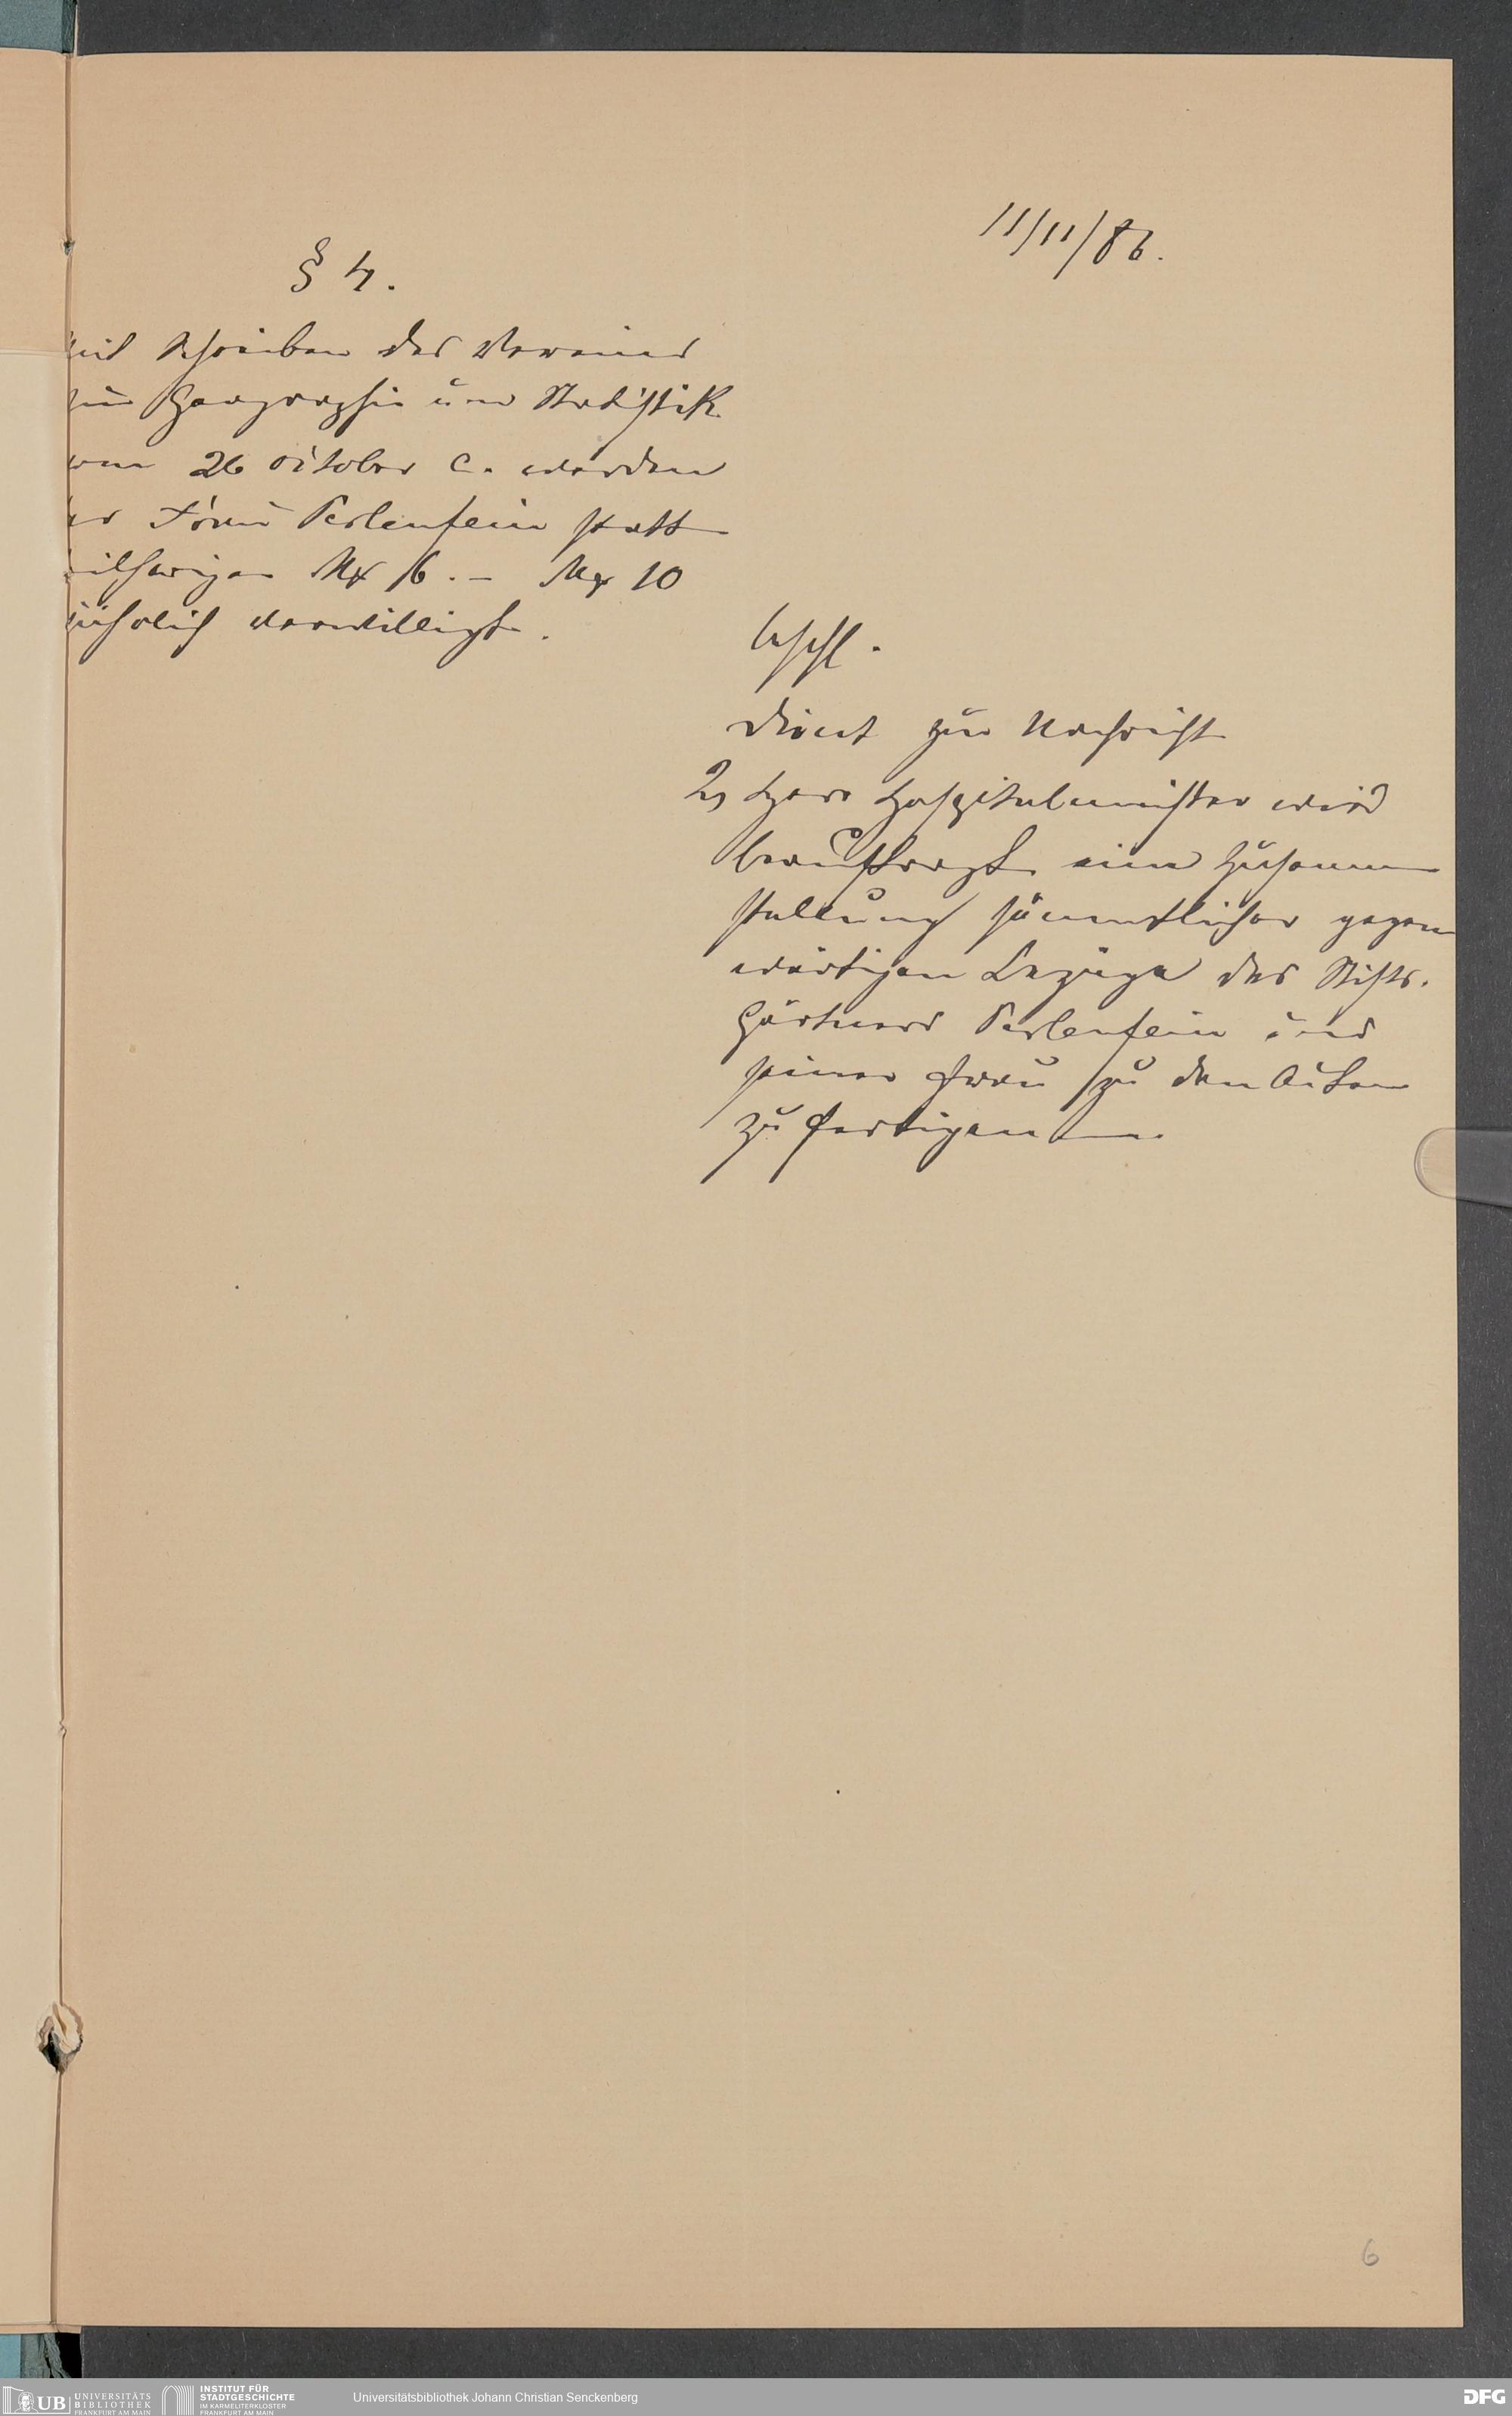 11/11/86.
§ 4.
mit Schreiben des Vereins
für Geographie und Statistik
vom 26 October c. werden
der Frau Perlenfein statt
seitherigen Mk 6.– Mk 10
jährlich verwilligt.
bschl.
Dient zur Nachricht
2, Herr Hospitalmeister wird
beauftragt eine Zusammen
stellung sämmtlicher gegen
wärtigen Bezüge des Stifts.
Gärtners Perlenfein und
seiner Frau zu den Acten
zu fertigen
6
UB UNIVERSITÄTS
BIBLIOTHEK
FRANKFURT AM MAIN
INSTITUT FÜR
STADTGESCHICHTE
IM KARMELITERKLOSTER
FRANKFURT AM MAIN
Universitätsbibliothek Johann Christian Senckenberg
DFG